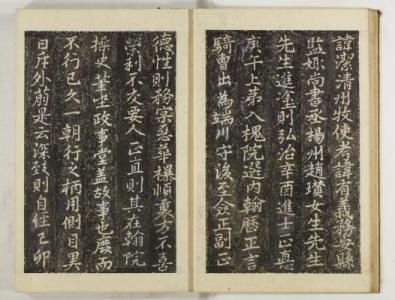 諱潔清州牧使考諱有義務安縣
監妣尚書丞楊州趙瓚女生先生
先生進塗則弘治辛酉進士正悳
庚午上第入槐院選內翰曆正言
騎曹出為端川守後至僉正副正
德性則務宗慈華樸愼裏方不喜
榮利不交要人正直則其在翰院
操史筆坐政事堂蓋故事也廢而
不行已久一朝行之柄用側目異
日斥外蓢是云深致則自經乙卯